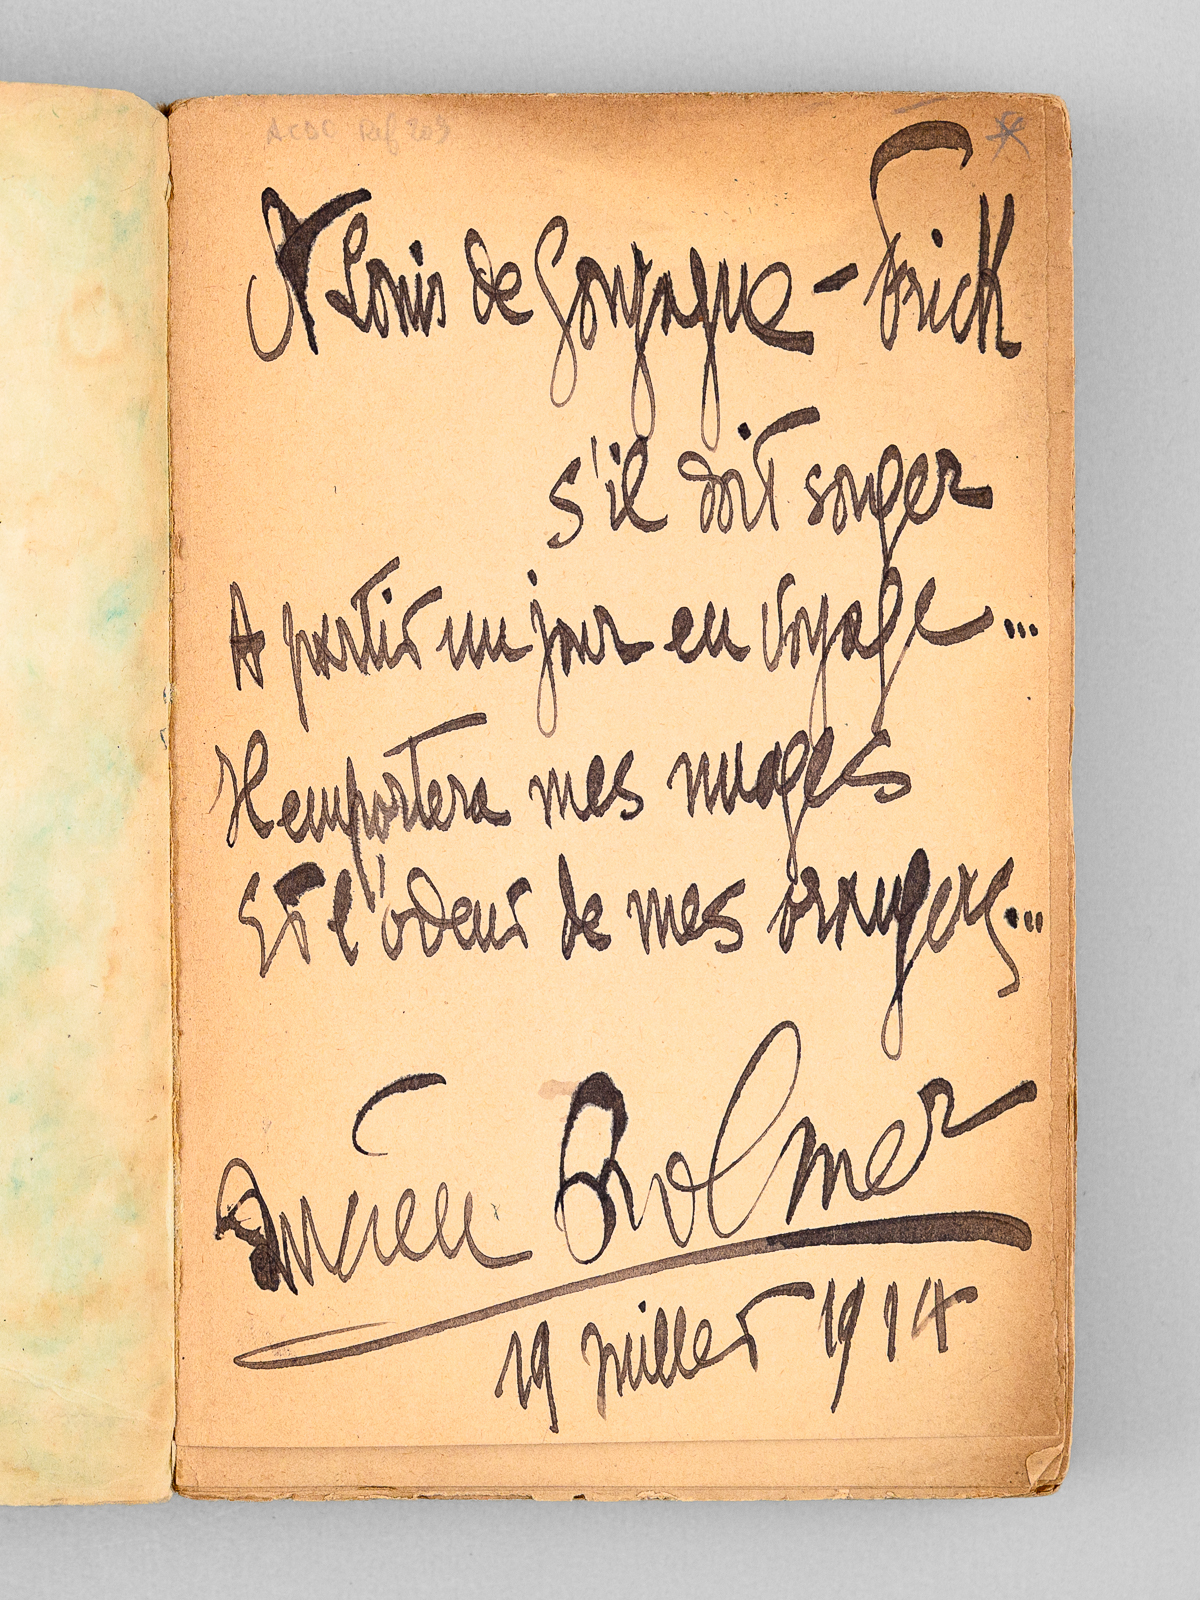 ACDC Ref 203
A Louis de Gonzague - Frick
s'il doit songer
A partir un jour en voyage...
Il emportera mes nuages
Et l'odeur de mes orangers...
Lucien Rolmer
19 juillet 1914